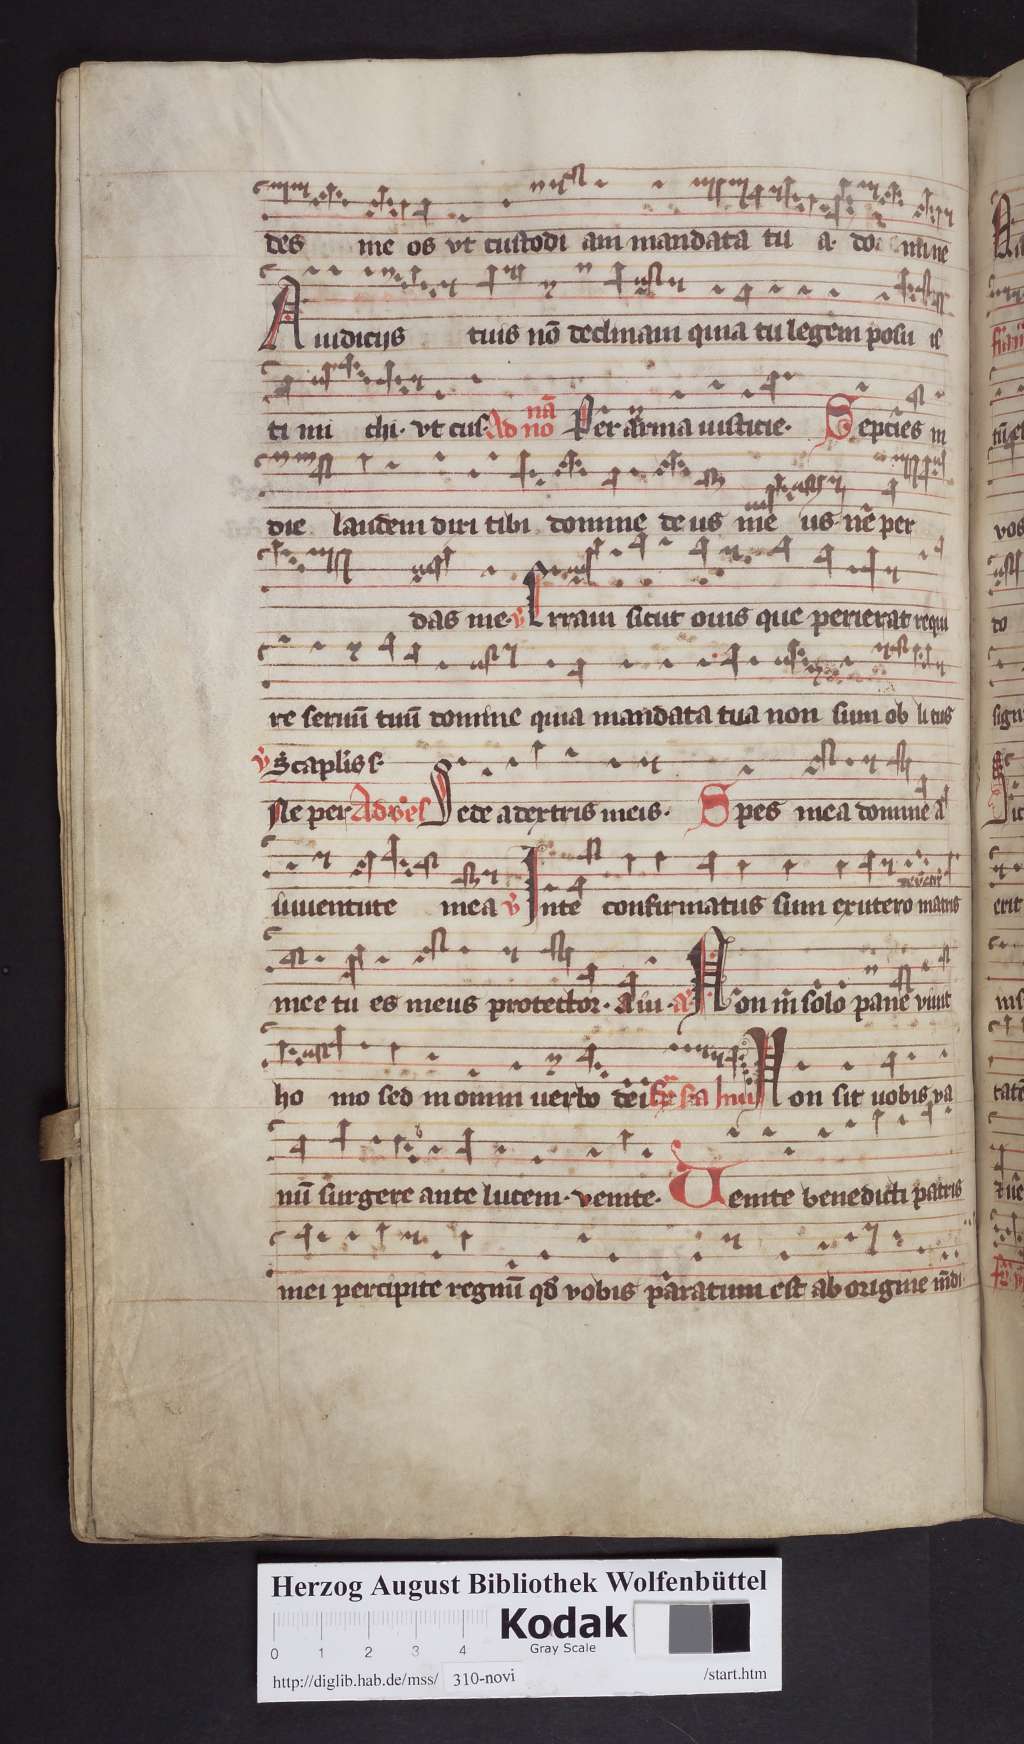 des me os vt custodi am mandata tu a. do mine
A iudicijs tuis nō declinaui quia tu legem posu is
ti mi chi. vt cus. Ad nonā Per arma iusticie. Septies in
die laudem dixi tibi domine de us me us. nē per
das me. v̄ Erraui sicut ouis que perierat requi
re seruū tuū domine quia mandata tua non sum ob litus
v̄ Scaplis s.
Ne per Ad v̄es Sede a dextris meis. Spes mea domine a
iuuentute mea v̄ Inte confirmatus sum ex utero matris
mee tu es meus protector. A iu. Non ī solo pane viuit
ho mo sed in omni uerbo dei Non sit uobis va
nū surgere ante lucem. venite. Uenite benedicti patris
mei percipite regnū qd vobis paratum est ab origine mūdi.
Herzog August Bibliothek Wolfenbüttel
0 1 2 3 4
Kodak
Gray Scale
http://diglib.hab.de/mss/ 310-novi /start.htm